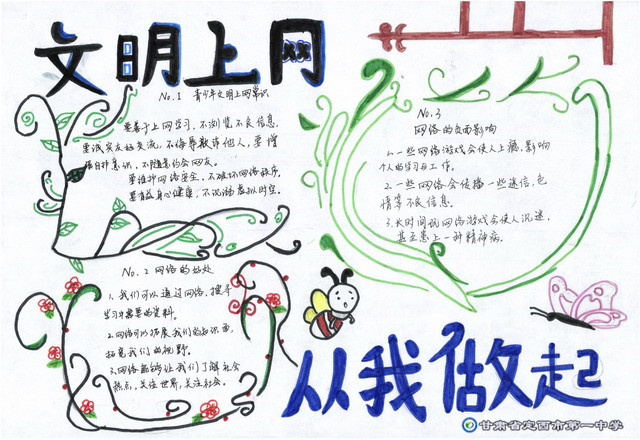 文明上网
No.1 青少年文明上网常识
要善于上网学习，不浏览不良信息，
要诚实友好交流，不侮辱欺诈他人，要增
强自护意识，不随意约会网友。
要维护网络安全，不破坏网络秩序，
要有益身心健康，不沉溺虚拟时空。
No.2 网络的好处
1. 我们可以通过网络，搜寻
学习中需要的资料。
2. 网络可以拓展我们的知识面，
拓宽我们的视野。
3. 网络能够让我们了解社会
热点，关注世界，关注社会。
No.3
网络的负面影响
1. 一些网络游戏会使人上瘾，影响
个人的学习与工作。
2. 一些网络会传播一些迷信，色
情等不良信息。
3. 长时间玩网络游戏会使人沉迷，
甚至患上一种精神病。
从我做起
甘肃省定西市第一中学